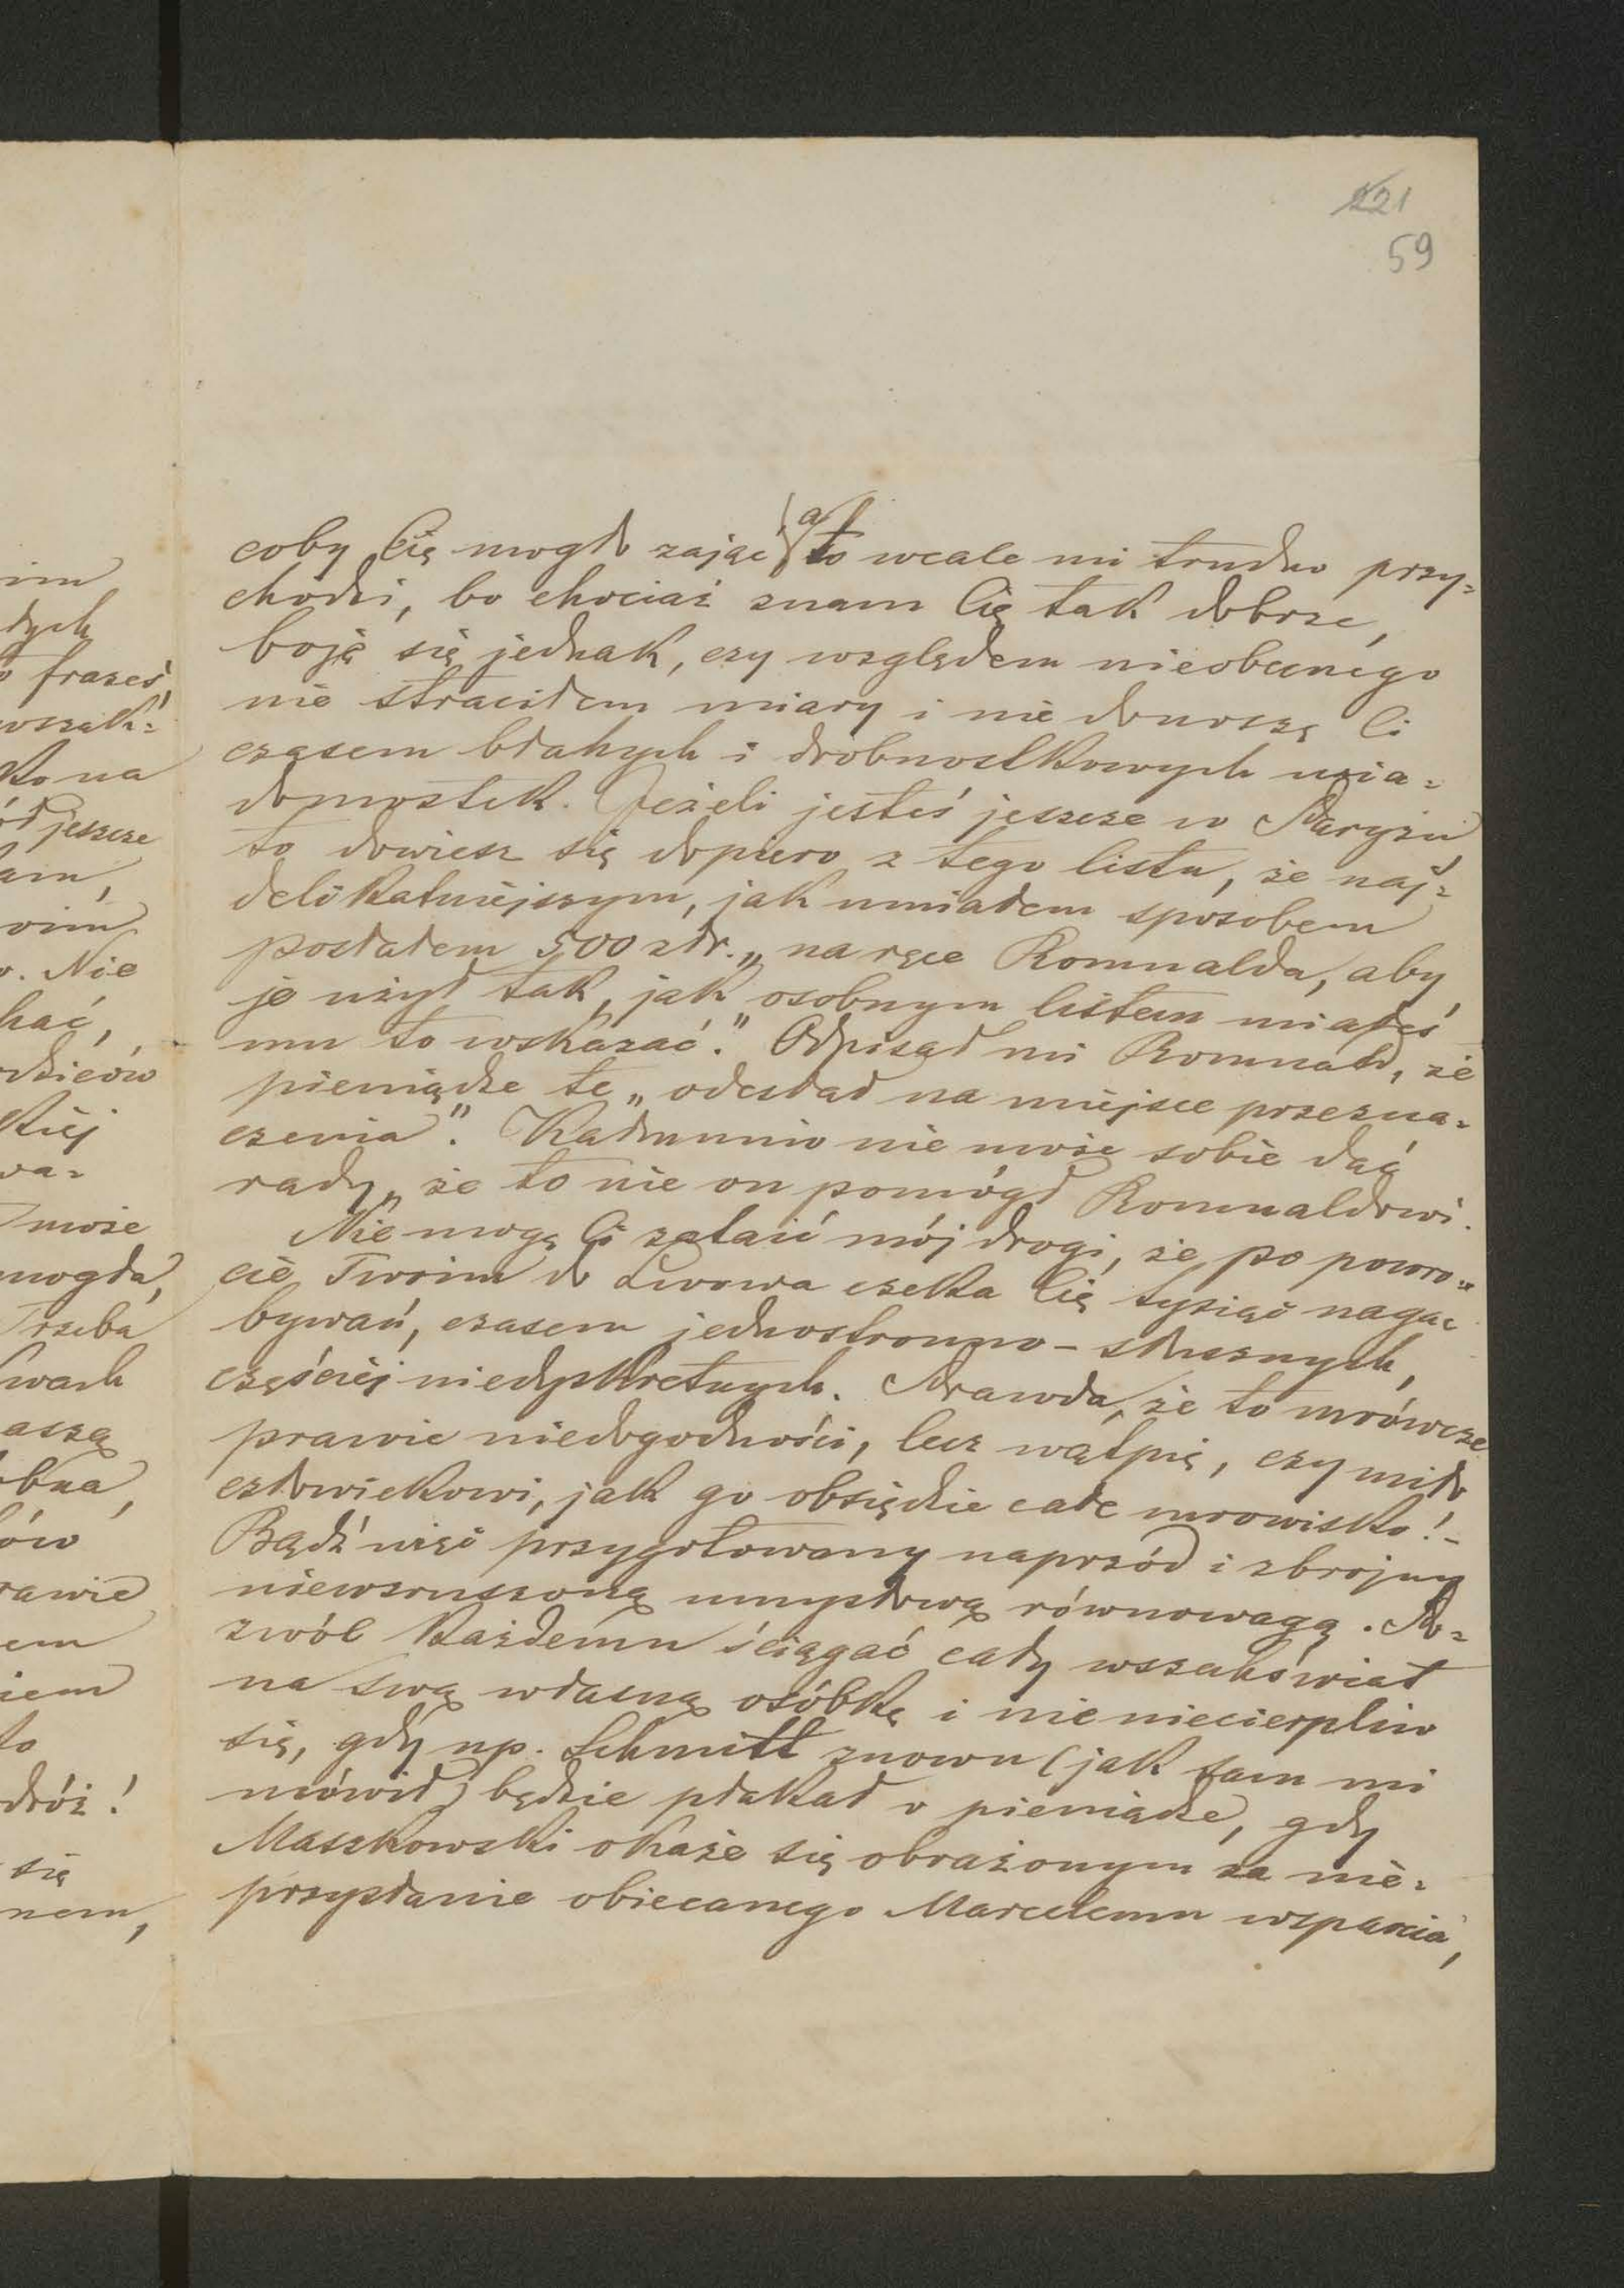 221
59
coby Cię mogło zająć, a to wcale mi trudno przy=
chodzi, bo chociaż znam Cię tak dobrze,
boję się jednak, czy względem nieobecnego
nie straciłem miary i nie donoszę Ci
czasem błahych i drobnostkowych wia=
domostek. Jeżeli jesteś jeszcze w Paryżu
to dowiesz się dopiero z tego listu, że naj=
delikatniejszym, jak umiałem sposobem
posłałem 500 złr. „na ręce Romualda, aby
je użył tak, jak osobnym listem miałeś
mu to wskazać." Odpisał mi Romuald, że
pieniądze te „odesłał na miejsce przezna=
czenia". Kadmunio nie może sobie dać
rady, że to nie on pomógł Romualdowi.
Nie mogę Ci zataić mój drogi, że po powro=
cie Twoim do Lwowa czeka Cię tysiąc naga=
bywań, czasem jednostronno-słusznych,
częściéj niedyskretnych. Prawda, że to mrówcze
prawie niedogodności, lecz wątpię, czy miło
człowiekowi, jak go obsiędzie całe mrowisko! –
Bądź więc przygotowany naprzód i zbrojny
niewzruszoną umysłową równowagą. Po=
zwól każdemu ściągać cały wszechświat
na swą własną osóbkę i nie niecierpliw
się, gdy np. Schmitt znowu (jak sam mi
mówił) będzie płakał o pieniądze, gdy
Maszkowski okaże się obrażonym za nie=
przysłanie obiecanego Marcelemu wsparcia,
im
tych
frazes,
wszak=
ko na
jeszcze
am,
oim
o. Nie
hać,
kiéj
wa=
może
mogła,
Trzeba
wach
aszą
obna,
ów
rawie
em
iem
to
dróż!
się
nem,